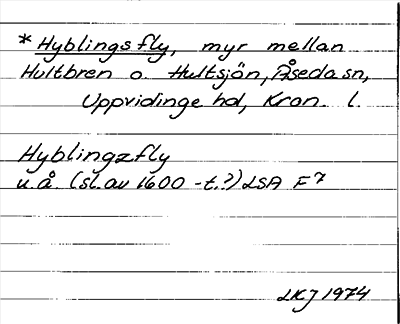 * Hyblingsfly, myr mellan
Hultbren o. Hultsjön, Åseda sn,
Uppvidinge hd, Kron. l.
Hyblingzfly
u.å. (sl. av 1600-t.?) LSA F7
LKJ 1974